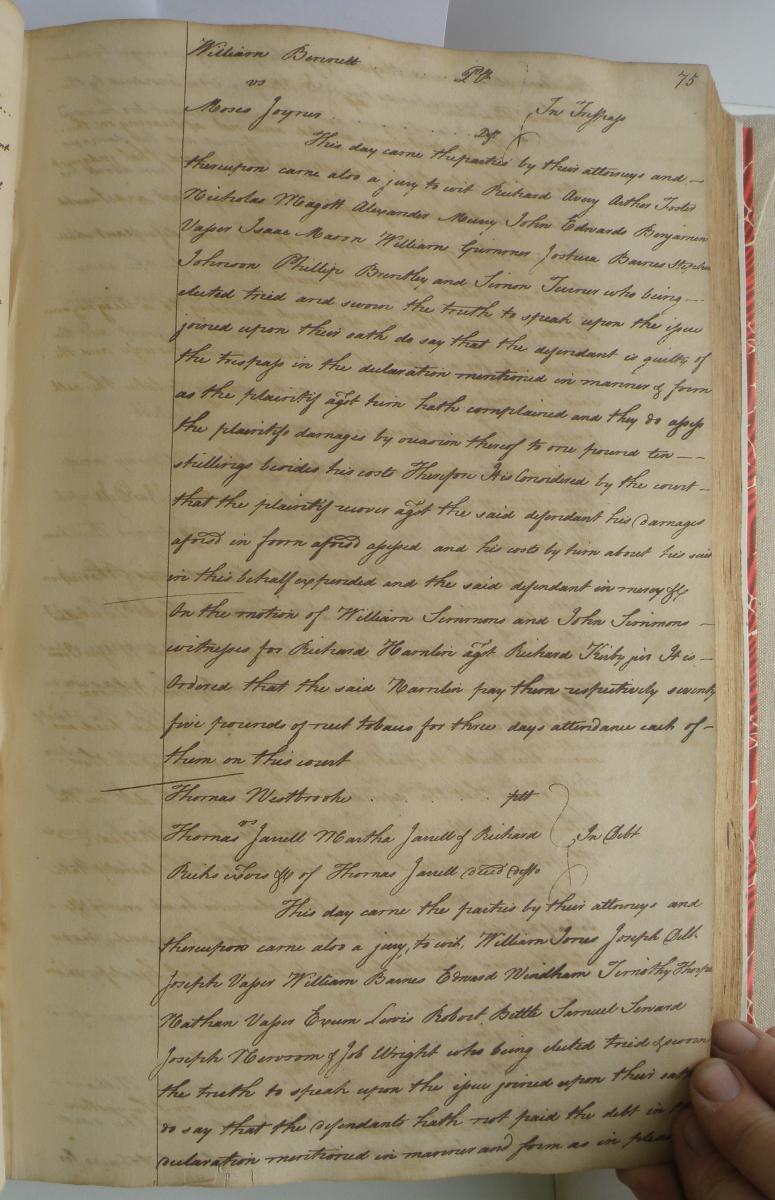 75
William Bennett Plt
vs
Moses Joyner Deft In Trespass
This day came the parties by their attorneys and
thereupon came also a jury to wit Richard Avery Arthur Foster
Nicholas Magett Alexander Murry John Edwards Benjamin
Vasser Isaac Mason William Grimmer Joshua Barnes Stephen
Johnson Phillip Brantley and Simon Turner who being
elected tried and sworn the truth to speak upon the issue
joined upon their oath do say that the defendant is guilty of
the trespass in the declaration mentioned in manner & form
as the plaintiff agst him hath complained and they do assess
the plaintiffs damages by occasion thereof to one pound ten
shillings besides his costs Therefore It is Considered by the court
that the plaintif recover agst the said defendant his damages
aforsd in form aforsd assessed and his costs by him about his suit
in this behalf expended and the said defendant in mercy &c
On the motion of William Simmons and John Simmons
witnesses for Richard Hamlin agst Richard Kirby junr It is
Ordered that the said Hamlin pay them respectively seventy
five pounds of neet tobacco for three days attendance each of
them on this court
Thomas Westbrooke plt
vs
Thomas Jarrell Martha Jarrell & Richard In Debt
Ricks exors &c of Thomas Jarrell deced defts
This day came the parties by their attorneys and
thereupon came also a jury, to wit, William Jones Joseph Delk
Joseph Vasser William Barnes Edward Windham Timothy Thorpe
Nathan Vasser Exum Lewis Robert Bittle Samuel Seward
Joseph Newsom & Job Wright who being elected tried & sworn
the truth to speak upon the issue joined upon their oath
do say that the defendants hath not paid the debt in
declaration mentioned in manner and form as in